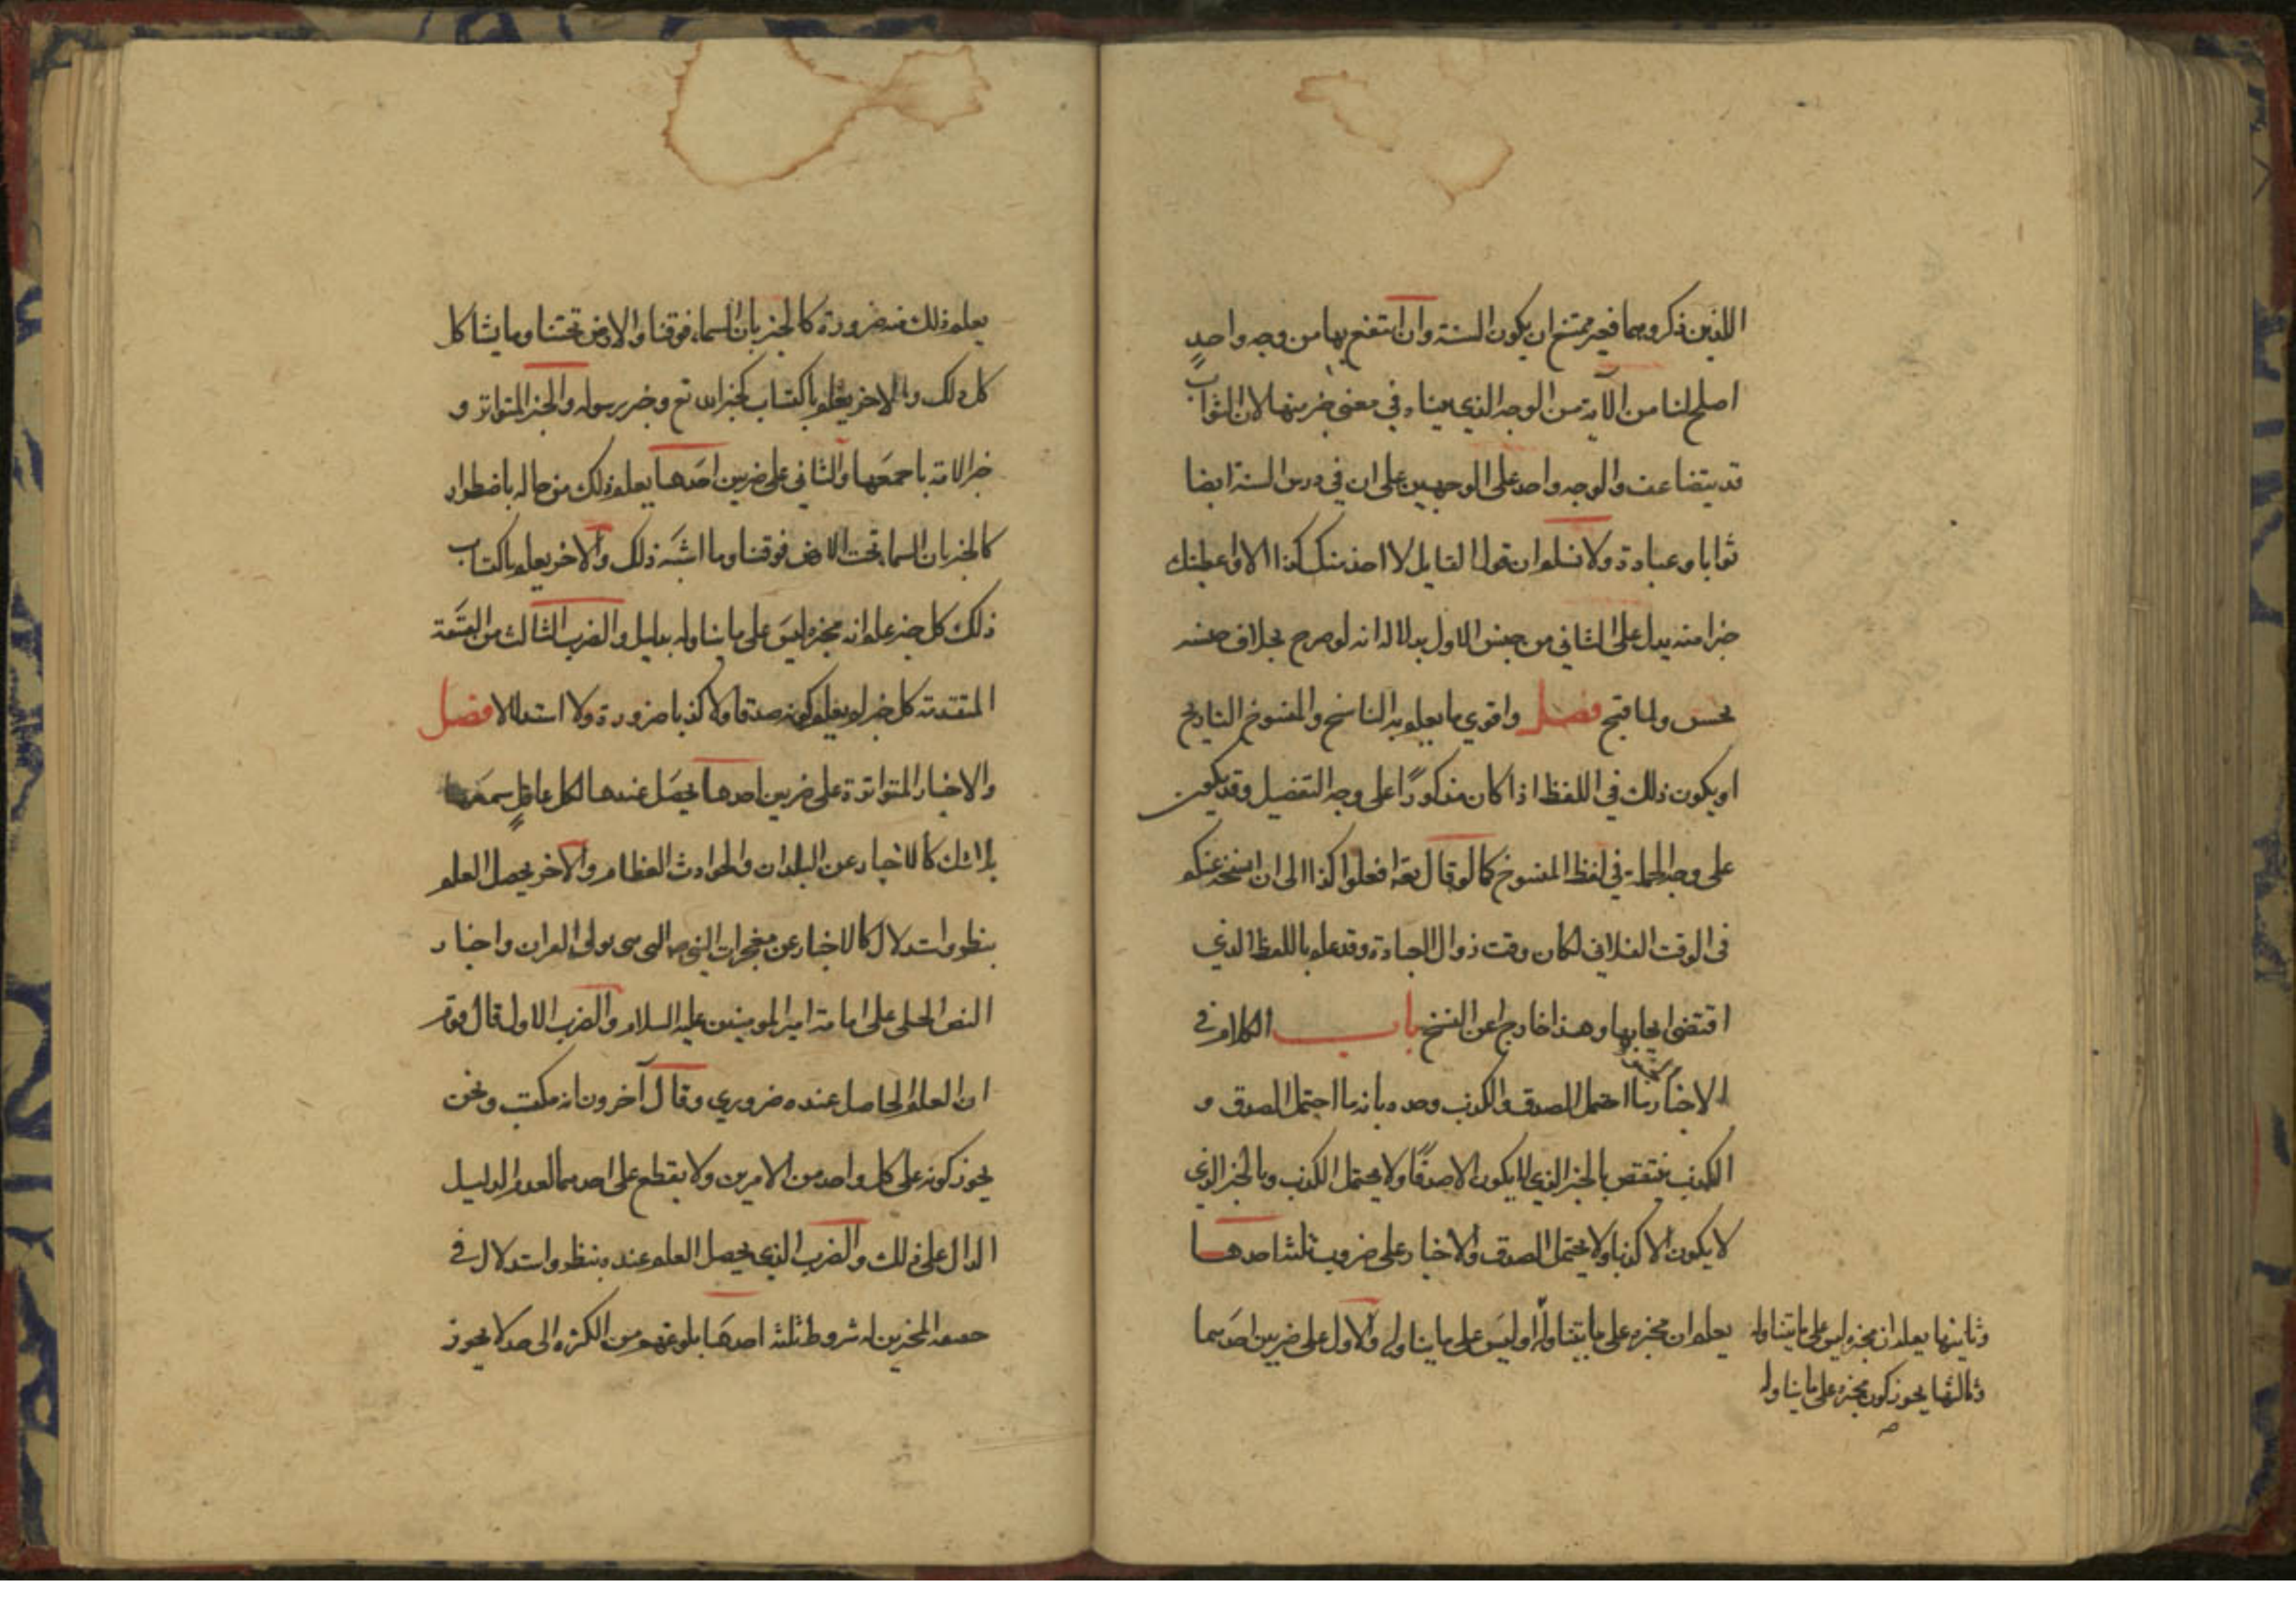 اللذين ذكروهما فغير ممتنع ان يكون السنة وان انتفع بها من وجه واحدٍ
اصلح لنا من الآية من الوجه الذي بيناه في معنى خير منها لان الثواب
قد يتضاعف والوجه واحد على الوجهين على ان في درس السنة ايضا
ثوابا وعبادة ولا نسلم ان قول القايل لا اخذ منك كذا الا واعطيتك
خيرا منه يدل على الثاني من جنس الاول بدلالة انه لو صرح بخلاف جنسه
لحسن ولما قبح فصل واقوي ما يعلم به الناسخ والمنسوخ التاريخ
او يكون ذلك في اللفظ اذا كان مذكورًا على وجه التفصيل وقد يكون
على وجه الجملة في لفظ المنسوخ كما لو قال تعه افعلوا كذا الى ان انسخه عنكم
في الوقت الفلاني لكان وقت زوال العبادة وقد علم باللفظ الذي
اقتضى ايجابها وهذا خارج عن النسخ باب الكلام في
الاخبار ما احتمل الصدق والكذب وحده بانه ما احتمل الصدق و
الكذب ينتقض بالخبر الذي لا يكون الا صدقًا ولا يحتمل الكذب وبالخبر الذي
لا يكون الا كذبا ولا يحتمل الصدق والاخبار على ضروب ثلثة احدها
يعلم ان مخبره على ما يتناوله او ليس على ما يتناوله والاول على ضربين احدهما
وثاينها يعلم ان مخبره ليس على ما يتناوله
وثالثها يجوز كون مخبره على ما يتناوله
صح
يعلم ذلك منه ضرورة كالخبر بان السماء فوقنا والارض تحتنا وما يشاكل
كل ذلك والاخر يعلم باكتساب كخبر الله تع وخبر رسوله والخبر المتواتر و
خبر الامة باجمعها والثاني على ضربين احدهما يعلم ذلك من حاله باضطرار
كالخبر بان السما تحت الارض فوقنا وما اشبه ذلك والاخر يعلم باكتساب
ذلك كل خبر علم انه مخبره ليس على ما يتناوله بدليل والضرب الثالث من القسمة
المتقدمة كل خبر لم يعلم كونه صدقا ولا كذبا ضرورة ولا استدلالا فصل
والاخبار المتواترة على ضربين احدها يحصل عندها لكل عاقلٍ سمعها
بلا شك كالاخبار عن البلدان والحوادث العظام والاخر يحصل العلم
بنظر واستدلال كالاخبار عن معجزات النبي صه التي سوى القران واخبار
النص الجلى على امامة امير المومنين عليه السلام والضرب الاول قال قوم
ان العلم الحاصل عنده ضروري وقال آخرون انه مكتسب ونحن
يجوز كونه على كل واحد من الامرين ولا يقطع على احدهما لعدم الدليل
الدال على ذلك والضرب الذي يحصل العلم عنده بنظر واستدلال في
المخبرين له شروط ثلثة احدها بلوغهم من الكثرة الى حد لا يجوز